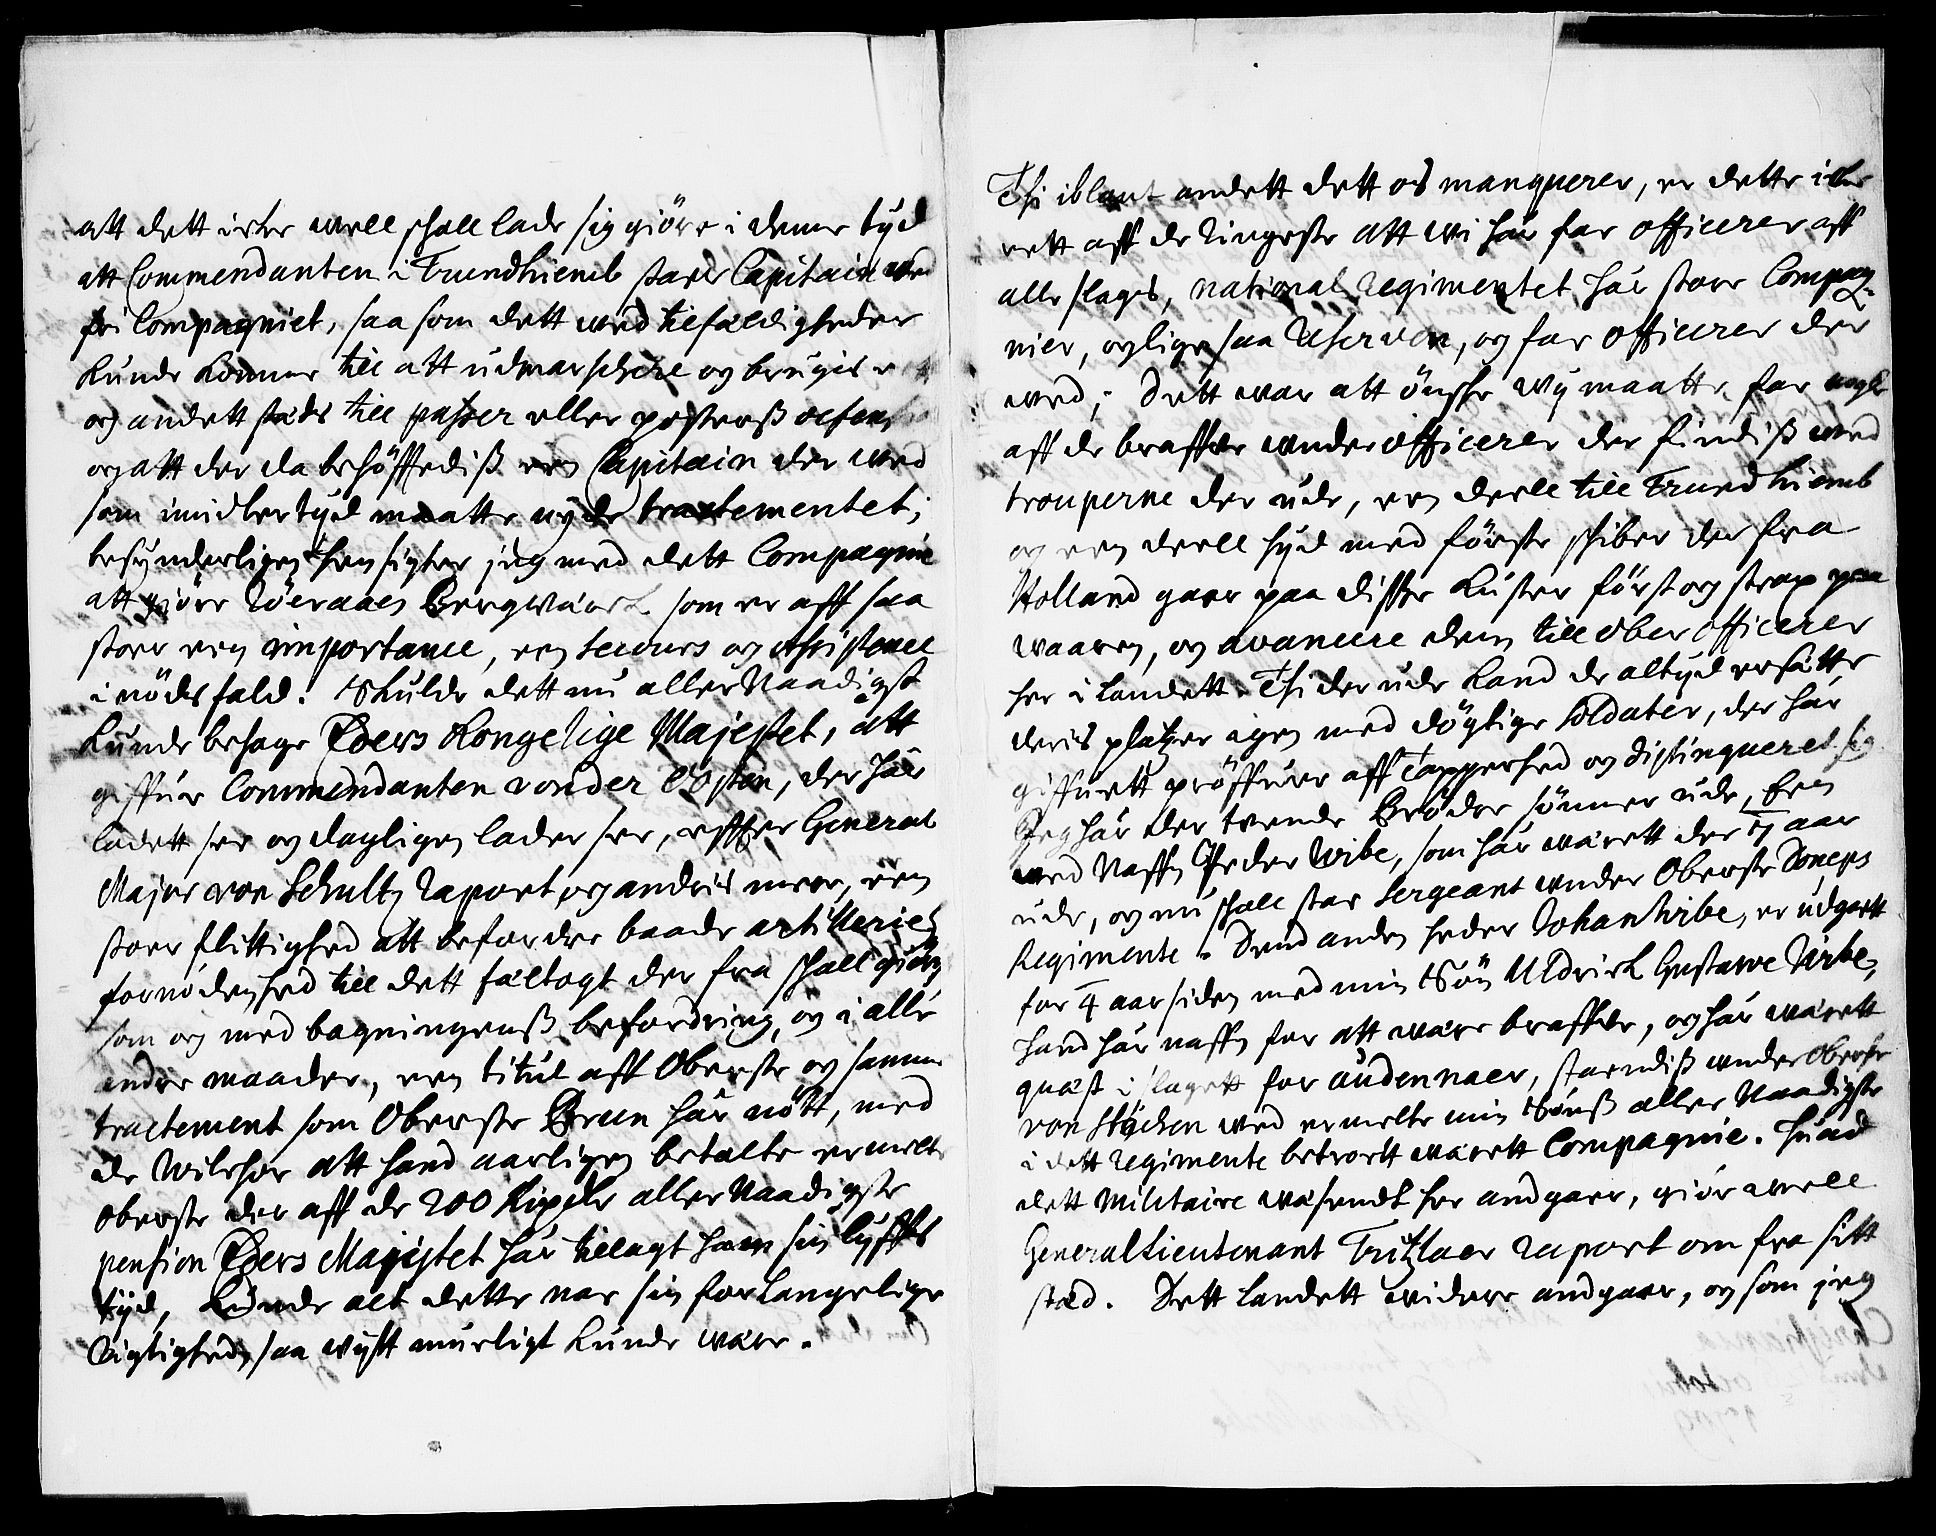 att dett icke well schall lade sig giöre i denne tyd
att Commendanten i Trundhiemb staar Capitain wed
fri Compagniet, saa som dett wed tilfældigheder
kunde komme till att udmarschere og brugis
og andett steds till passer eller posterß defen
og att der da behöffuediß een Capitain der wed
som imidlertyd maatte nyde tractementet;
besynderligen hensigter jeg med dett Compagnie
att giöre Röeraaes Bergwærk som er aff saa
stoer een importance, een secours og assistance
i nöds fald. Skulde dett nu aller Naadigst
kunde behage Eders Kongelige Majestet, att
giffue Commendanten von der Osten, der har
ladett see og dagligen lader see, effter General
Major von Schultz raport, og andris meere, een
stoer flittighed att befordre baade artilleriets
fornödenhed till dett feltogt der fra schall giöris
som og med bagningenß befordring, og i alle
andre maader, een titul aff Oberste og samme
tractement som Oberste Brun har nött, med
de wilchor att hand aarligen betalte ermelte
Oberste der aff de 200 Rixdlr aller Naadigste
pension Eders Majestet har tillagt ham sin lyffs
tyd, kunde alt dette naa sin forlangelige
Rigtighed, saa wytt mueligt kunde være.
Thi iblant andett dett os manquerer, er dette icke
eett aff de ringeste att wi har faa officerer aff
alle slags, national regimentet har store Compag-
nier, og ligesaa Reserven, og faa officerer der
wed; Dett war att önske wy maatte faa nogle
aff de braffue underofficerer der findiß wed
trouperne der ude, een deell till Trundhiemb
og een deell hyd med förste schiber der fra
Holland gaar paa disse kuster först og strax paa
waaren, og avancere dem till ober officerer
her i landett. Thi der ude kand de altyd ersætte
deris platzer igen med dögtige soldater, der har
giffuett pröffuer aff Tapperhed og distingueret sig
Jeg har der twende Broder sönner ude, Een
wed Naffn Peder Wibe, som har wærett der 7 aar
ude, og nu schall staa Sergeant under Oberste Doneps
Regimente. Dend anden heder Johan Wibe, er udgaett
for 4 aar siden med min Sön Uldrick Gustawe Wibe,
hand har naffn for att wære braffue, og har wærett
quæst i slagett for audennaer, staendiß under Oberste
von Stöcken wed ermelte min Sönß aller Naadigste
i dett regimente betroett wærett Compagnie. Huad
dett Militaire wæsendt her andgaar, giör well
General Lieutenant Tritzlaer raport om fra sitt
stæd. Dett landett widere andgaar, og som jeg